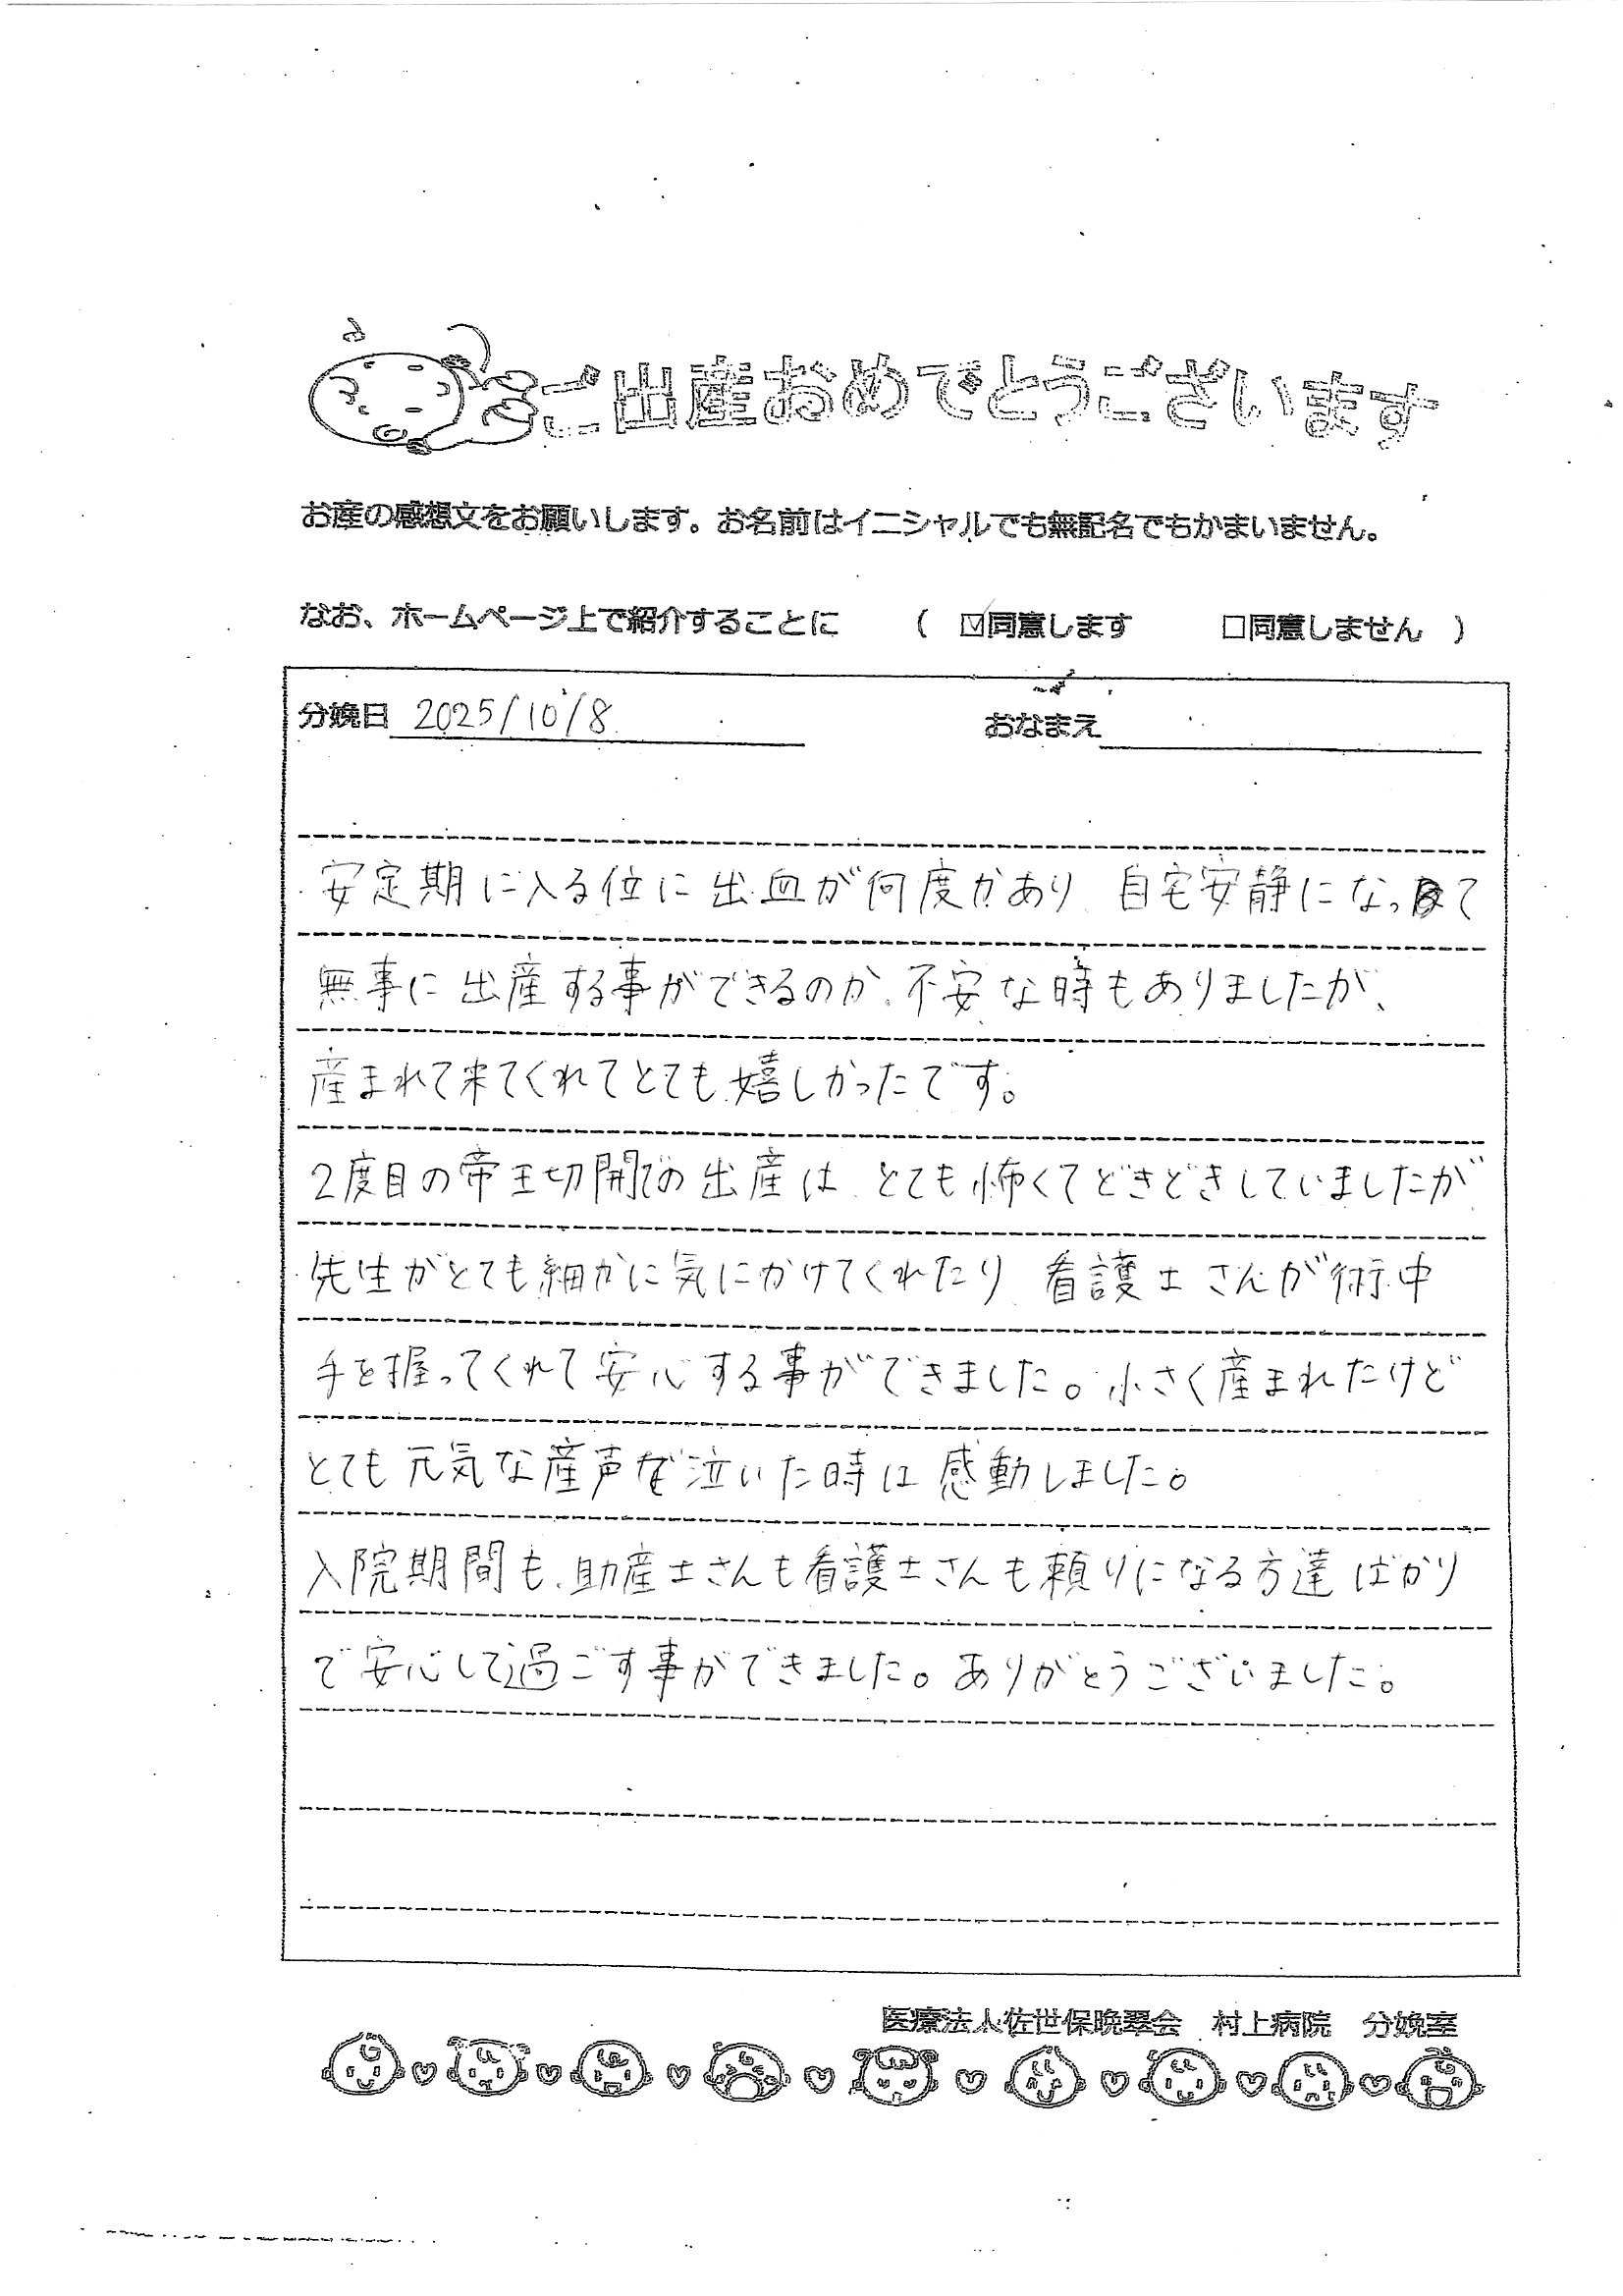 ご出産おめでとうございます
お産の感想文をお願いします。お名前はイニシャルでも無記名でもかまいません。
なお、ホームページ上で紹介することに （ ☑同意します □同意しません ）
分娩日 2025/10/8 おなまえ
安定期に入る位に出血が何度かあり 自宅安静になって
無事に出産する事ができるのか、不安な時もありましたが、
産まれて来てくれてとても嬉しかったです。
2度目の帝王切開での出産は、とても怖くてどきどきしていましたが
先生がとても細かに気にかけてくれたり 看護士さんが術中
手を握ってくれて安心する事ができました。小さく産まれたけど
とても元気な産声で泣いた時は感動しました。
入院期間も、助産士さんも看護士さんも頼りになる方達ばかり
で安心して過ごす事ができました。ありがとうございました。
医療法人佐世保晩翠会 村上病院 分娩室